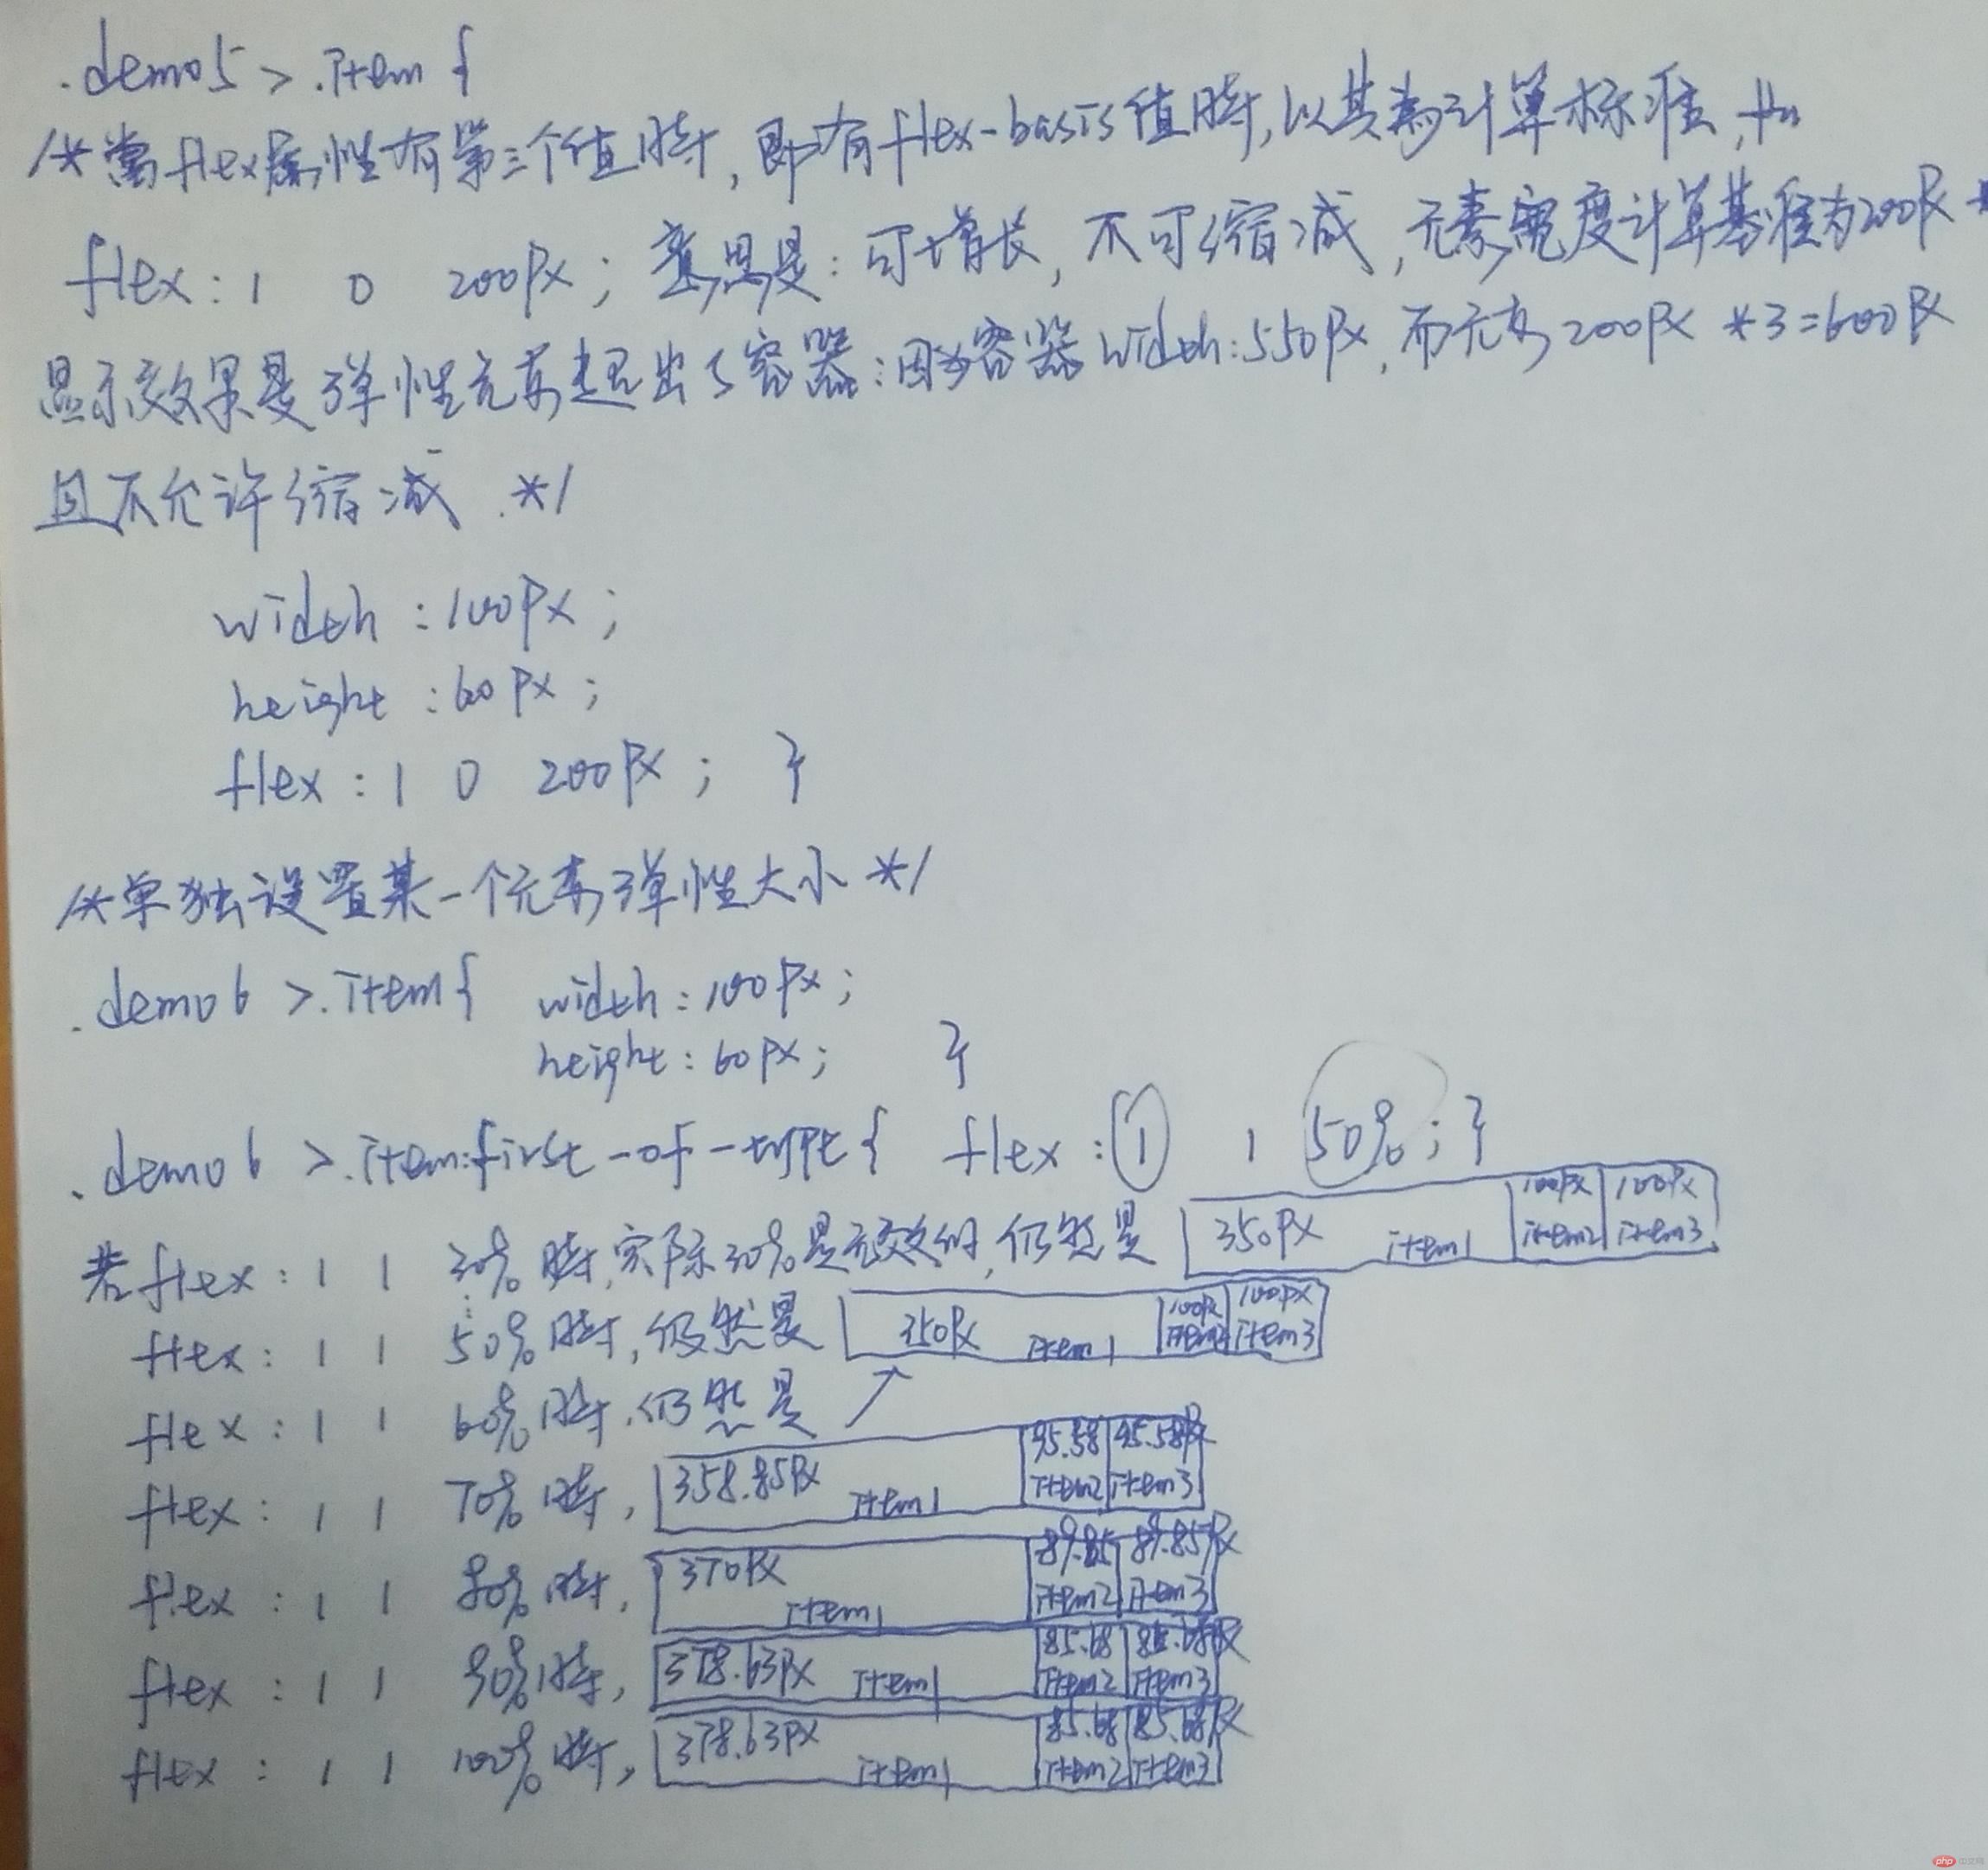 .demo5 > .item {
/*当flex属性有第三个值时,即有flex-basis值时,以其为计算标准,如
flex: 1 0 200px; 意思是:可增长,不可缩减,元素宽度计算基准为200px
显示效果是弹性元素超出了容器:因为容器width:550px,而元素200px *3=600px
且不允许缩减.*/
width:100px;
height:60px;
flex:1 0 200px; }
/*单独设置某一个元素弹性大小*/
.demo6 >.item{ width:100px;
height:60px; }
.demo6 >.item:first-of-type{ flex:1 1 50%;}
若flex:1 1 30%时,实际30%是无效的,仍然是 350px item1 100px item2 100px item3
flex:1 1 50%时,仍然是 350px item1 100px item2 100px item3
flex:1 1 60%时,仍然是
flex:1 1 70%时, 358.85px item1 95.58 item2 95.58px item3
flex:1 1 80%时, 370px item1 89.85 item2 89.85px item3
flex:1 1 90%时, 378.63px item1 85.68 item2 85.68px item3
flex:1 1 100%时, 378.63px item1 85.68 item2 85.68px item3
php